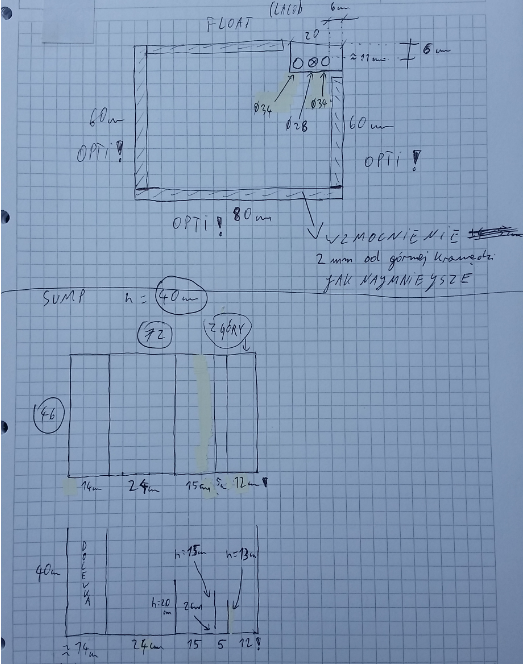 FLOAT
6cm
20
6cm
≈11cm
Ø34
Ø28
Ø34
60cm
OPTI!
60cm
OPTI!
OPTI! 80cm
WZMOCNIENIE
2mm od górnej krawędzi
JAK NAYMNIEYSZE
SUMP h = 40cm
72
Z GÓRY
46
14cm 24cm 15cm 5c 12cm!
40cm
DOLEWKA
h=15cm h=13cm
h=20cm
2cm
≈14cm 24cm 15 5 12!